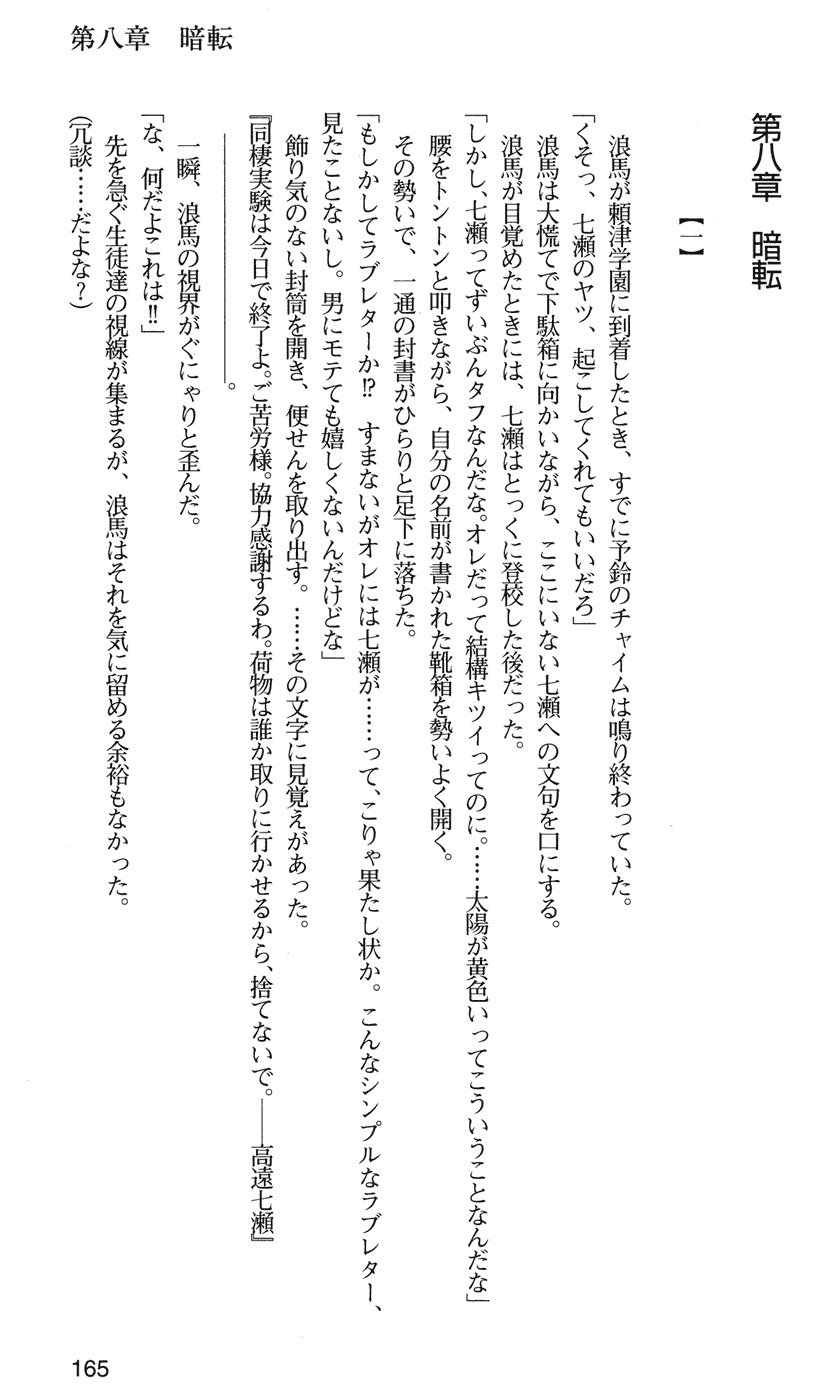 第八章　暗転
第八章　暗転
【一】
　浪馬が頼津学園に到着したとき、すでに予鈴のチャイムは鳴り終わっていた。
「くそっ、七瀬のヤツ、起こしてくれてもいいだろ」
　浪馬は大慌てで下駄箱に向かいながら、ここにいない七瀬への文句を口にする。
　浪馬が目覚めたときには、七瀬はとっくに登校した後だった。
「しかし、七瀬ってずいぶんタフなんだな。オレだって結構キツイってのに。……太陽が黄色いってこういうことなんだな」
　腰をトントンと叩きながら、自分の名前が書かれた靴箱を勢いよく開く。
　その勢いで、一通の封書がひらりと足下に落ちた。
「もしかしてラブレターか⁉　すまないがオレには七瀬が……って、こりゃ果たし状か。こんなシンプルなラブレター、
見たことないし。男にモテても嬉しくないんだけどな」
　飾り気のない封筒を開き、便せんを取り出す。……その文字に見覚えがあった。
『同棲実験は今日で終了よ。ご苦労様。協力感謝するわ。荷物は誰か取りに行かせるから、捨てないで。――高遠七瀬』
　――――――――――――。
　一瞬、浪馬の視界がぐにゃりと歪んだ。
「な、何だよこれは‼」
　先を急ぐ生徒達の視線が集まるが、浪馬はそれを気に留める余裕もなかった。
（冗談……だよな？）
165